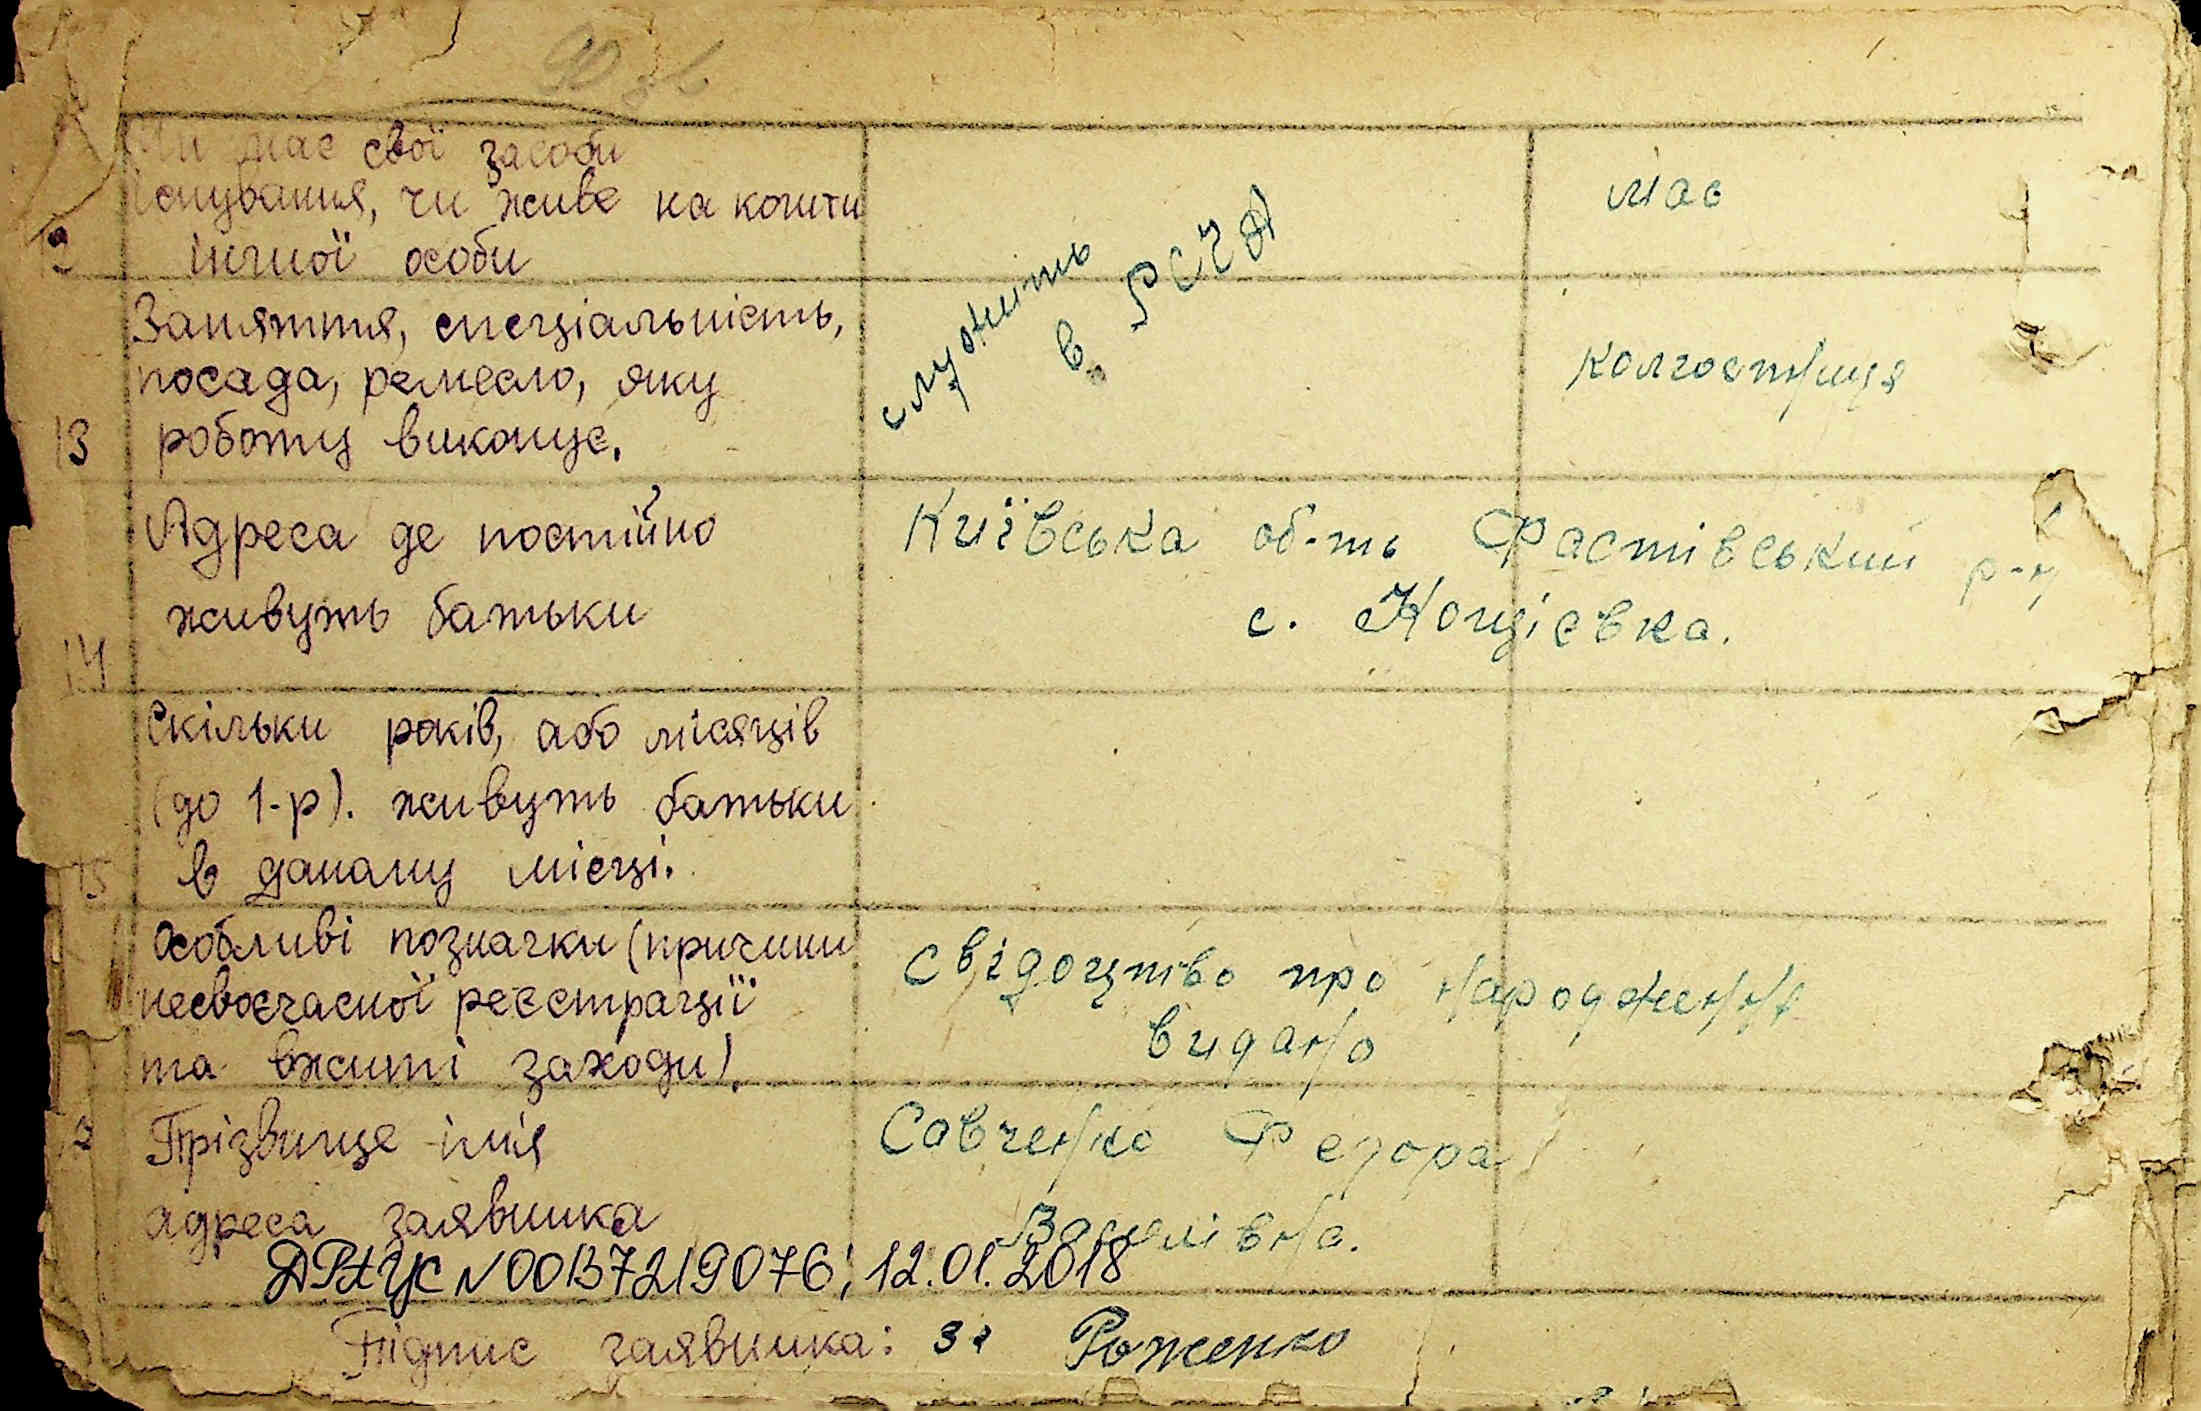 Чи має свої засоби
існування, чи живе на кошти
іншої особи
служить
в РСЧА
має
13
Заняття, спеціальність,
посада, ремесло, яку
роботу виконує.
колгоспниця
14
Адреса де постійно
живуть батьки
Київська об-ть Фастівський р-н
с. Кощієвка.
15
Скільки років, або місяців
(до 1-р). живуть батьки
в даному місці.
Особливі позначки (причини
несвоєчасної реєстрації
та вжиті заходи).
свідоцтво про народження
видано
Прізвище ім'я
адреса заявника
Савченко Федора
Василівна.
ДРАЦС N 00137219076; 12.01.2018
Підпис заявника: за Роженко